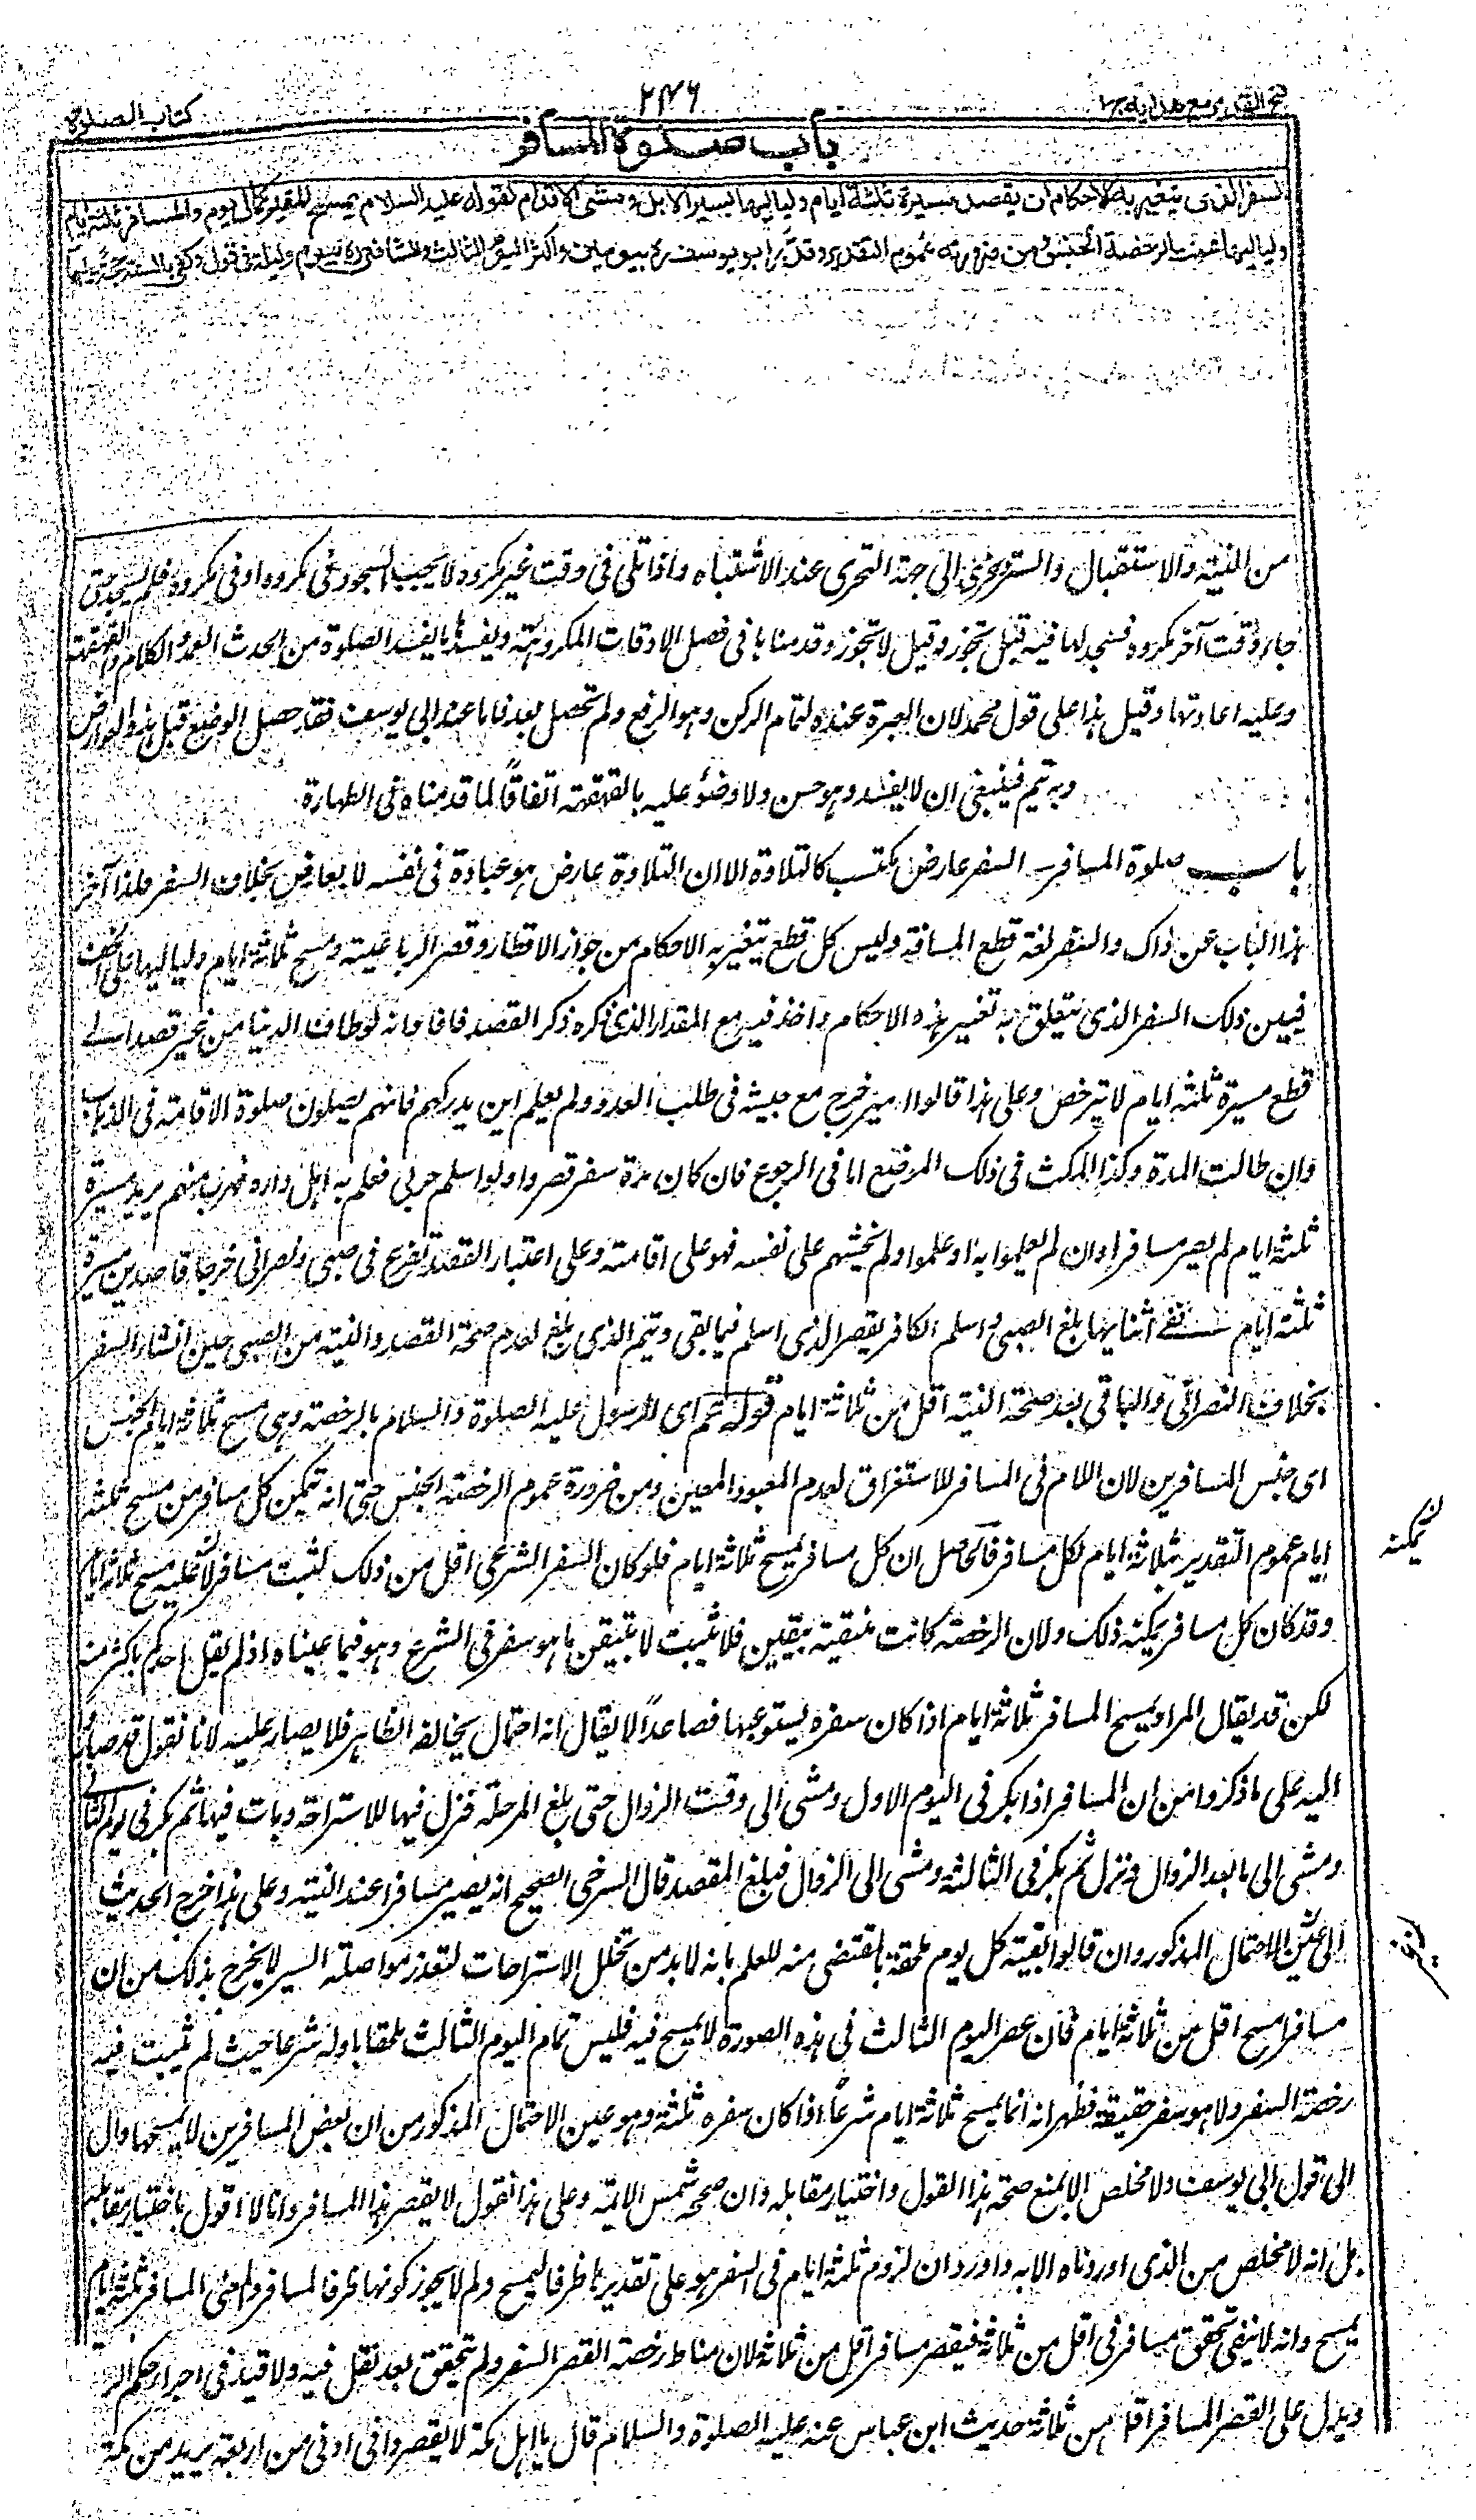 فتح القدير مع هداية ج١
٢٤٦
كتاب الصلوة
باب صلوة المسافر
السفر الذى يتغير به الاحكام ان يقصد مسيرة ثلثة ايام ولياليها بسير الابل ومشى الاقدام لقوله عليه السلام يمسح المقيم كمال يوم وليلة والمسافر ثلثة ايام
ولياليها عمت الرخصة الجنس ومن ضرورته عموم التقدير وقدر ابو يوسف رح بيومين واكثر اليوم الثالث والشافعى رح بيوم وليلة فى قول وكفى بالسنة حجة عليهما
من النية والاستقبال والستر الى جهة التحرى عند الاشتباه واذا تلى فى وقت غير مكروه لا يجب السجود فى مكروه او فى مكروه فلم يسجد حتى
جاء وقت آخر مكروه فسجد لها فيه قيل تجوز وقيل لا تجوز وقد منا ها فى فصل الاوقات المكروهة ويفسدها ما يفسد الصلوة من الحدث العمد والكلام والقهقهة
وعليه اعادتها وقيل هذا على قول محمد لان العبرة عنده لتمام الركن وهو الرفع ولم يحصل بعد فاما عند ابى يوسف فقد حصل الوضع قبل هذه العوارض
وبه تتم فينبغى ان لا يفسد وهو حسن ولا وضوء عليه بالقهقهة اتفاقًا لما قدمناه فى الطهارة
باب صلوة المسافر السفر عارض مكتسب كالتلاوة الا ان التلاوة عارض هو عبادة فى نفسه لا بعارض بخلاف السفر فلذا آخر
هذا الباب عن ذاك والسفر لغة قطع المسافة وليس كل قطع يتغير به الاحكام من جواز الافطار وقصر الرباعية ومسح ثلاثة ايام ولياليها على الخف
فبين ذلك السفر الذى يتعلق به تغيير هذه الاحكام واخذ فيه مع المقدار الذى ذكره ذكر القصد فافاد انه لو طاف الدنيا من غير قصد الى
قطع مسيرة ثلثة ايام لا يترخص وعلى هذا قالوا امير خرج مع جيشه فى طلب العدو ولم يعلم اين يدركهم فانهم يصلون صلوة الاقامة فى الذهاب
وان طالت المدة وكذا المكث فى ذلك الموضع اما فى الرجوع فان كان مدة سفر قصروا ولو اسلم حربى فعلم به اهل داره فهرب منهم يريد مسيرة
ثلثة ايام لم يصر مسافرا وان لم يعلموا به او علموا ولم يخشهم على نفسه فهو على اقامته وعلى اعتبار القصد تفرع فى صبى ونصرانى خرجا قاصدين مسيرة
ثلثة ايام ففى اثنايها بلغ الصبى واسلم الكافر يقصر الذى اسلم فيما بقى ويتم الذى بلغ لعدم صحة القصد والنية من الصبى حين انشاء السفر
بخلاف النصرانى والباقى بعد صحة النية اقل من ثلاثة ايام قوله عم اى الرسول عليه الصلوة والسلام بالرخصة وهى مسح ثلاثة ايام الجنس
اى جنس المسافرين لان اللام فى المسافر للاستغراق لعدم المعهود المعين ومن ضرورة عموم الرخصة الجنس حتى انه يتمكن كل مسافر من مسح ثلثة
ايام عموم التقدير بثلاثة ايام لكل مسافر فالحاصل ان كل مسافر يمسح ثلاثة ايام فلو كان السفر الشرعى اقل من ذلك لثبت مسافر لا يمكنه مسح ثلاثة ايام
وقد كان كل مسافر يمكنه ذلك ولان الرخصة كانت منتفية بيقين فلا تثبت الا بتيقن ما هو سفر فى الشرع وهو فيما عيناه اذ لم يقل احدكم باكثر منه
لكن قد يقال المراد يمسح المسافر ثلاثة ايام اذا كان سفره يستوعبها فصاعدًا لا يقال انه احتمال يخالفه الظاهر فلا يصار عليه لانا نقول قد صاروا
اليه على ما ذكروا من ان المسافر اذا بكر فى اليوم الاول ومشى الى وقت الزوال حتى بلغ المرحلة فنزل فيها للاستراحة وبات فيها ثم بكر فى اليوم الثانى
ومشى الى ما بعد الزوال ونزل ثم بكر فى الثالثة ومشى الى الزوال فبلغ المقصد قال السرخسى الصحيح انه يصير مسافرا عند النية وعلى هذا خرج الحديث
الى عين الاحتمال المذكور وان قالوا بقية كل يوم ملحقة بالمنقضى منه للعلم بانه لا بد من تخلل الاستراحات لتعذر مواصلة السير لا يخرج بذلك من ان
مسافرا مسح اقل من ثلاثة ايام فان عصر اليوم الثالث فى هذه الصورة لا يمسح فيه فليس تمام اليوم الثالث ملحقا باوله شرعا حيث لم تثبت فيه
رخصة السفر ولا هو سفر حقيقة فظهر انه انما يمسح ثلاثة ايام شرعًا اذا كان سفره ثلثة وهو عين الاحتمال المذكور من ان بعض المسافرين لا يمسحها وآل
الى قول ابى يوسف ولا مخلص الا بمنع صحة هذا القول واختيار مقابله وان صححه شمس الائمة وعلى هذا نقول لا يقصر هذا المسافر وانا لا اقول باختيار مقابله
بل انه لا مخلص من الذى اوردناه الا به واورد ان لزوم ثلثة ايام فى السفر هو على تقديرها ظرفا ليمسح ولم لا يجوز كونها ظرفا لمسافر والمعنى المسافر ثلثة ايام
يمسح وانه لا ينفى تحقق مسافر فى اقل من ثلاثة فيقصر مسافر اقل من ثلاثة لان مناط رخصة القصر السفر ولم يتحقق بعد نقل فيه ولا قيد فى اجراء حكم الر
ويدل على القصر لمسافر اقل من ثلاثة حديث ابن عباس عنه عليه الصلوة والسلام قال يا اهل مكة لا تقصروا فى ادنى من اربعة بريد من مكة
يمكنه